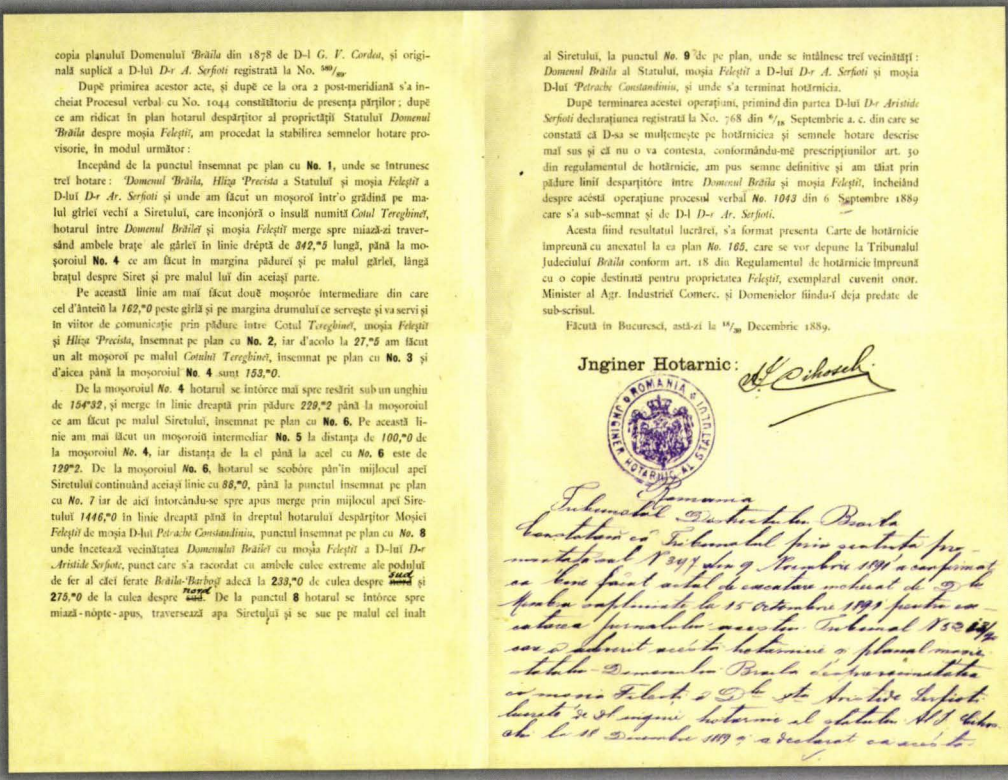 copia planuluĭ Domenuluĭ Brăila din 1878 de D-l G. V. Cordea, și origi-
nală suplică a D-luĭ D-r A. Serfioti registrată la No. ⁵⁸⁰/₈₉.
După primirea acestor acte, și după ce la ora 2 post-meridiană s'a în-
cheiat Procesul verbal cu No. 1044 constătătoriu de presența părților; după
ce am ridicat în plan hotarul despărțitor al proprietății Statuluĭ Domenul
Brăila despre moșia Feleștiĭ, am procedat la stabilirea semnelor hotare pro-
visorie, în modul următor:
Incepând de la punctul însemnat pe plan cu No. 1, unde se întrunesc
treĭ hotare: Domenul Brăila, Hliza Precista a Statuluĭ și moșia Feleștiĭ a
D-luĭ D-r Ar. Serfioti și unde am făcut un moșoroĭ într'o grădină pe ma-
lul gîrleĭ vechĭ a Siretuluĭ, care înconjóră o insulă numită Cotul Tereghineĭ,
hotarul între Domenul Brăileĭ și moșia Feleștiĭ merge spre miază-zi traver-
sând ambele brațe ale gârleĭ în linie dréptă de 342,ᵐ5 lungă, până la mo-
șoroiul No. 4 ce am făcut în margina pădureĭ și pe malul gârleĭ, lângă
brațul despre Siret și pre malul luĭ din aceiașĭ parte.
Pe această linie am maĭ făcut douĕ moșoróe intermediare din care
cel d'ânteiŭ la 162,ᵐ0 peste gîrlă și pe margina drumuluĭ ce servește și va servi și
în viitor de comunicație prin pădure între Cotul Tereghineĭ, moșia Feleștiĭ
și Hliza Precista, însemnat pe plan cu No. 2, iar d'acolo la 27,ᵐ5 am făcut
un alt moșoroĭ pe malul Cotuluĭ Tereghineĭ, însemnat pe plan cu No. 3 și
d'aicea până la moșoroiul No. 4 sunt 153,ᵐ0.
De la moșoroiul No. 4 hotarul se întórce maĭ spre resărit sub un unghiu
de 154ᵍ32, și merge în linie dreaptă prin pădure 229,ᵐ2 până la moșoroiul
ce am făcut pe malul Siretuluĭ, însemnat pe plan cu No. 6. Pe această li-
nie am maĭ făcut un moșoroiŭ intermediar No. 5 la distanța de 100,ᵐ0 de
la moșoroiul No. 4, iar distanța de la el până la acel cu No. 6 este de
129ᵐ2. De la moșoroiul No. 6, hotarul se scobóre pân'în mijlocul apeĭ
Siretuluĭ continuând aceiașĭ linie cu 88,ᵐ0, până la punctul însemnat pe plan
cu No. 7 iar de aicĭ întorcându-se spre apus merge prin mijlocul apeĭ Sire-
tuluĭ 1446,ᵐ0 în linie dreaptă până în dreptul hotaruluĭ despărțitor Moșieĭ
Feleștiĭ de moșia D-luĭ Petrache Constandiniu, punctul însemnat pe plan cu No. 8
unde încetează vecinătatea Domenuluĭ Brăileĭ cu moșia Feleștiĭ a D-luĭ D-r
Aristide Serfiote, punct care s'a racordat cu ambele culee extreme ale poduluĭ
de fer al căeĭ ferate Brăila-Barboșĭ adecă la 233,ᵐ0 de culea despre nord sud și
275,ᵐ0 de la culea despre sud nord. De la punctul 8 hotarul se întórce spre
miază-nópte-apus, traversează apa Siretuluĭ și se sue pe malul cel înalt
al Siretuluĭ, la punctul No. 9 de pe plan, unde se întâlnesc treĭ vecinătățĭ:
Domenul Brăila al Statuluĭ, moșia Feleștiĭ a D-luĭ D-r A. Serfioti și moșia
D-luĭ Petrache Constandiniu, și unde s'a terminat hotărnicia.
După terminarea acesteĭ operațiunĭ, primind din partea D-luĭ D-r Aristide
Serfioti declarațiunea registrată la No. 768 din ⁶/₁₈ Septembrie a. c. din care se
constată că D-sa se mulțemește pe hotărniciea și semnele hotare descrise
maĭ sus și că nu o va contesta, conformându-mĕ prescripțiunilor art. 30
din regulamentul de hotărnicie, am pus semne definitive și am tăiat prin
pădure liniĭ despărțitóre între Domenul Brăila și moșia Feleștiĭ, încheiând
despre acéstă operațiune procesul verbal No. 1043 din 6 Septembre 1889
care s'a sub-semnat și de D-l D-r Ar. Serfioti.
Acesta fiind resultatul lucrăreĭ, s'a format presenta Carte de hotărnicie
împreună cu anexatul la ea plan No. 165, care se vor depune la Tribunalul
Județiuluĭ Brăila conform art. 18 din Regulamentul de hotărnicie împreună
cu o copie destinată pentru proprietatea Feleștiĭ, exemplarul cuvenit onor.
Minister al Agr. Industrieĭ Comerc. și Domenielor fiindu-ĭ deja predate de
sub-scrisul.
Făcută în Bucurescĭ, astă-zi la ¹⁸/₃₀ Decembrie 1889.
Jnginer Hotarnic:
Al Cihoschi
ROMANIA
INGINER HOTARNIC AL STATULUI
Romania
Tribunalul Districtului Braila
Constatam că Tribunalul prin sentinta pro-
nuntata sub N 347 din 9 Noembrie 1891 a confirmat
ca bine facut actul de executare incheiat de D
Membru la 15 Octombrie 1891 pentru ex-
ecutarea jurnalului acestui Tribunal N
hotarnicie si planul mosiei
statului Domenului Braila despre vecinatatea
cu mosia Filesti a D Aristide Serfioti
lucrate de Dl inginer hotarnic al statului Al S Ciho-
schi la 18 Decembre 1889 si a declarat ca acesta